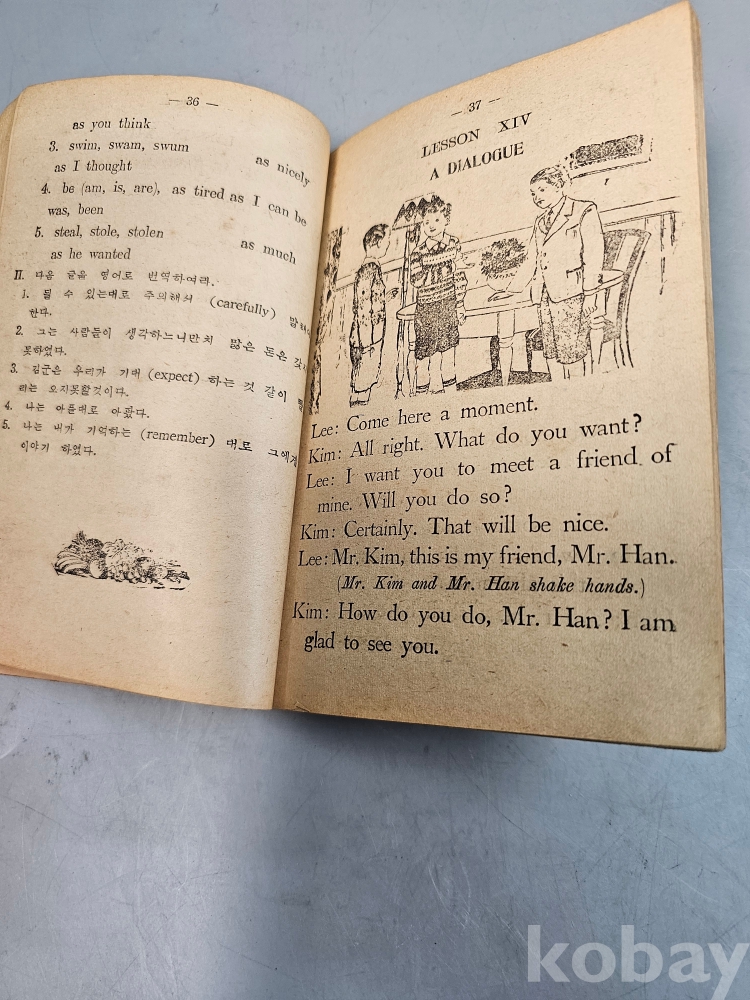 — 36 —
as you think
3. swim, swam, swum as nicely
as I thought
4. be (am, is, are), as tired as I can be
was, been
5. steal, stole, stolen as much
as he wanted
II. 다음 글을 영어로 번역하여라.
1. 될 수 있는대로 주의해서 (carefully)
한다.
2. 그는 사람들이 생각하느니만치 많은 돈은
못하였다.
3. 김군은 우리가 기대 (expect) 하는 것 같이
리는 오지못할것이다.
4. 나는 아픈대로 아팠다.
5. 나는 내가 기억하는 (remember) 대로
이야기 하였다.
— 37 —
LESSON XIV
A DIALOGUE
Lee: Come here a moment.
Kim: All right. What do you want?
Lee: I want you to meet a friend of
mine. Will you do so?
Kim: Certainly. That will be nice.
Lee: Mr. Kim, this is my friend, Mr. Han.
(Mr. Kim and Mr. Han shake hands.)
Kim: How do you do, Mr. Han? I am
glad to see you.
kobay